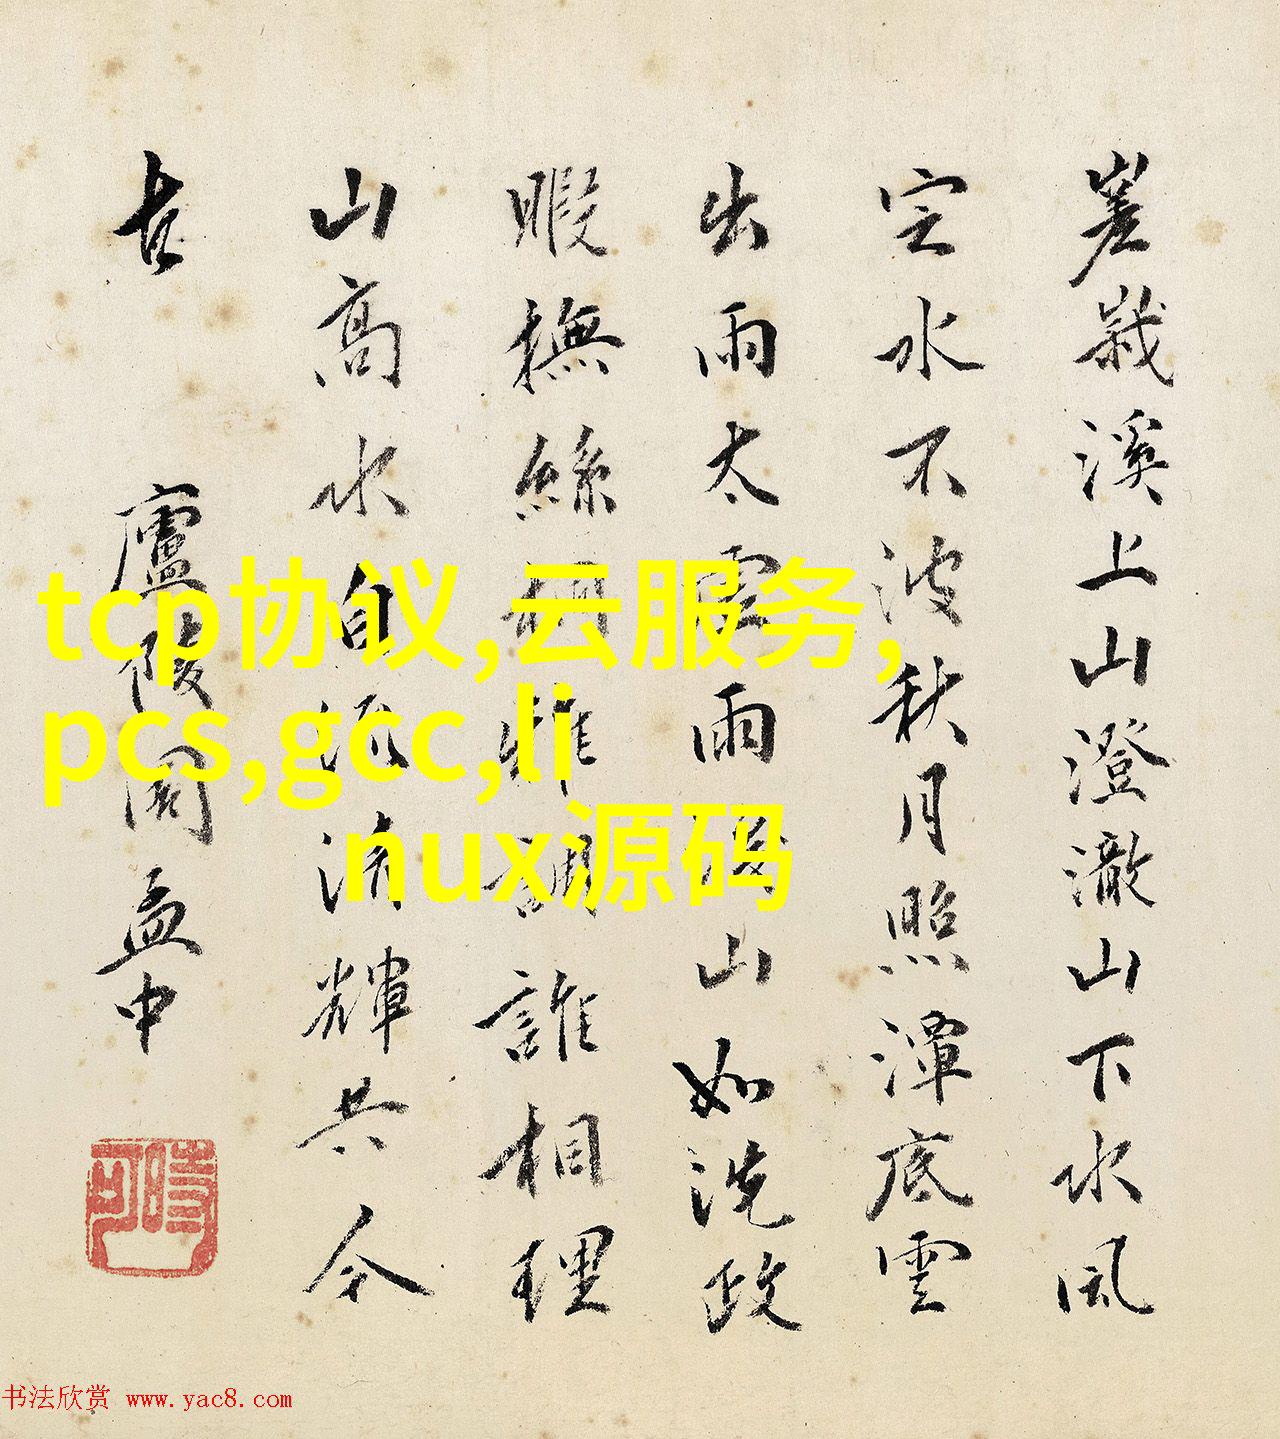 嵳峩溪上山澄澈山下水風
定水不波秋月照潭底雲
出雨太雲雨山如洗政
暇撫絲桐雅調誰相理
山高水自清輝共今
古
廬陵周孟中
tcp协议,云服务,
pcs,gcc,li
nux源码
书法欣赏 www.yac8.com